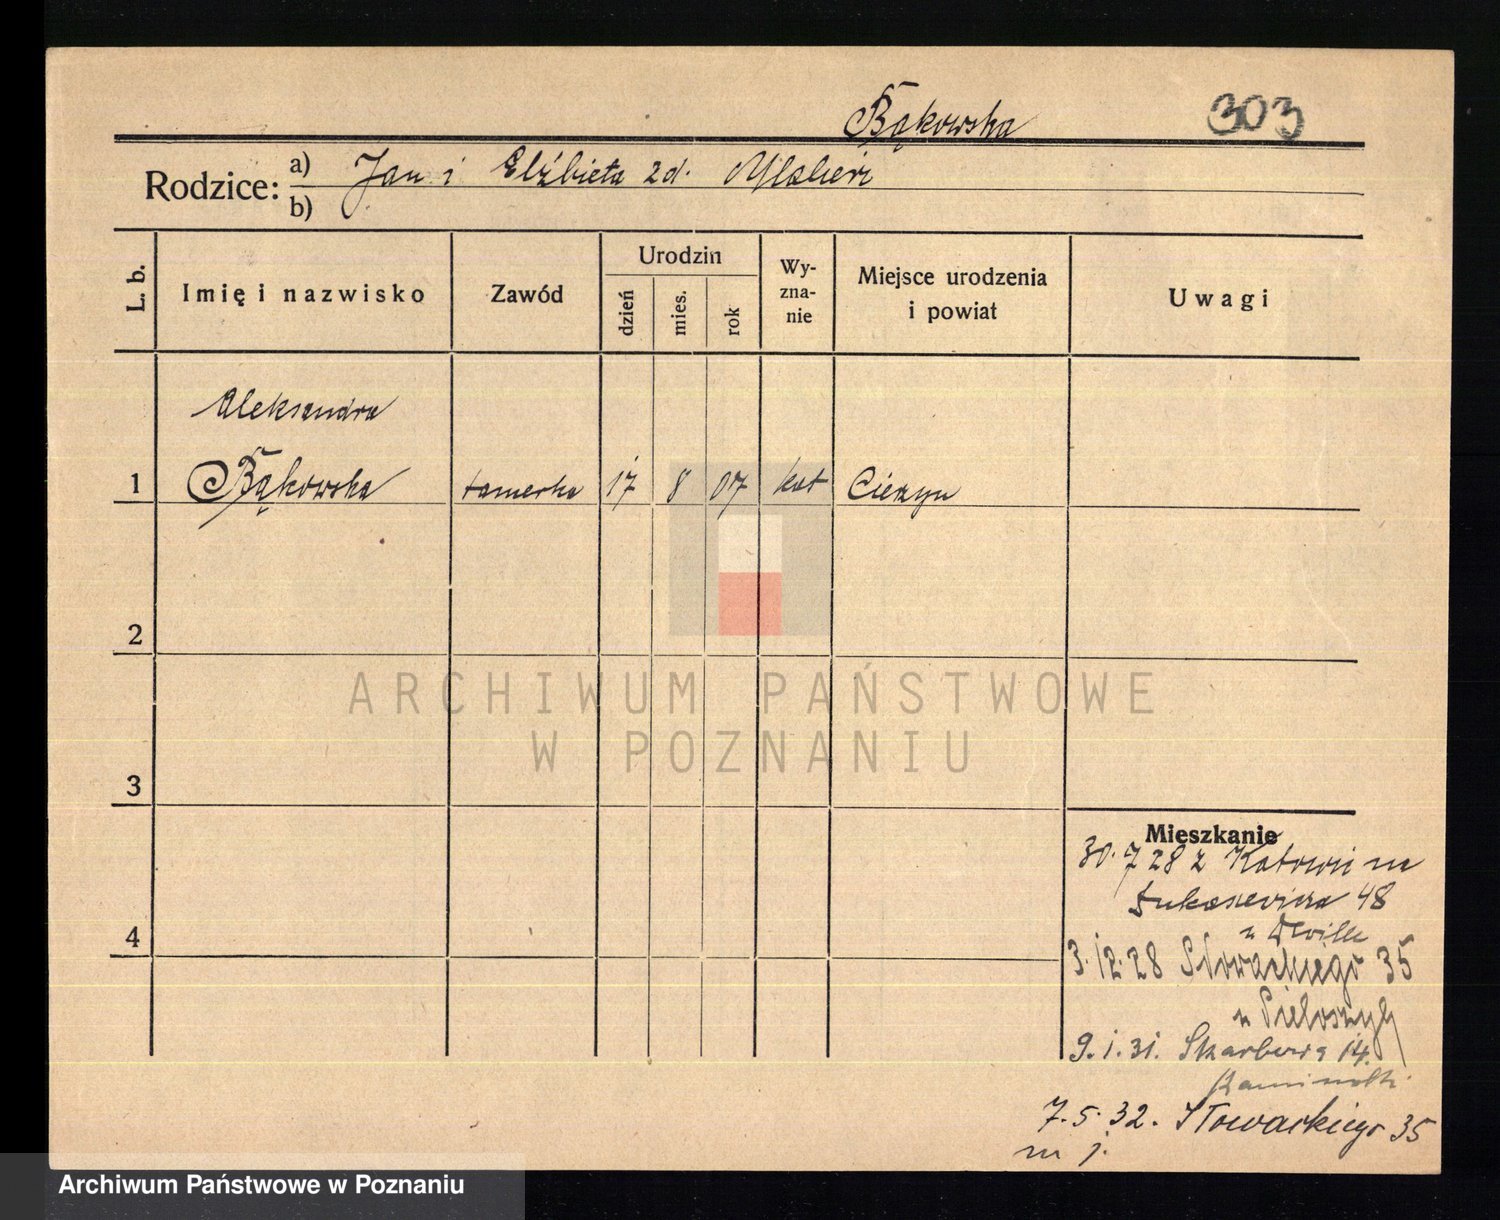 Bąkowska 303
Rodzice: a) Jan i Elżbieta zd.
b)
L. b. Imię i nazwisko Zawód Urodzin dzień mies. rok Wy-zna-nie Miejsce urodzenia i powiat Uwagi
Aleksandra
1 Bąkowska 17 8 07 kat
2
ARCHIWUM PAŃSTWOWE
W POZNANIU
3
Mieszkanie
30.7 28 z
48
4
3.12.28 Słowackiego 35
9.1.31. Skarbowa 14.
7.5.32. Słowackiego 35
Archiwum Państwowe w Poznaniu